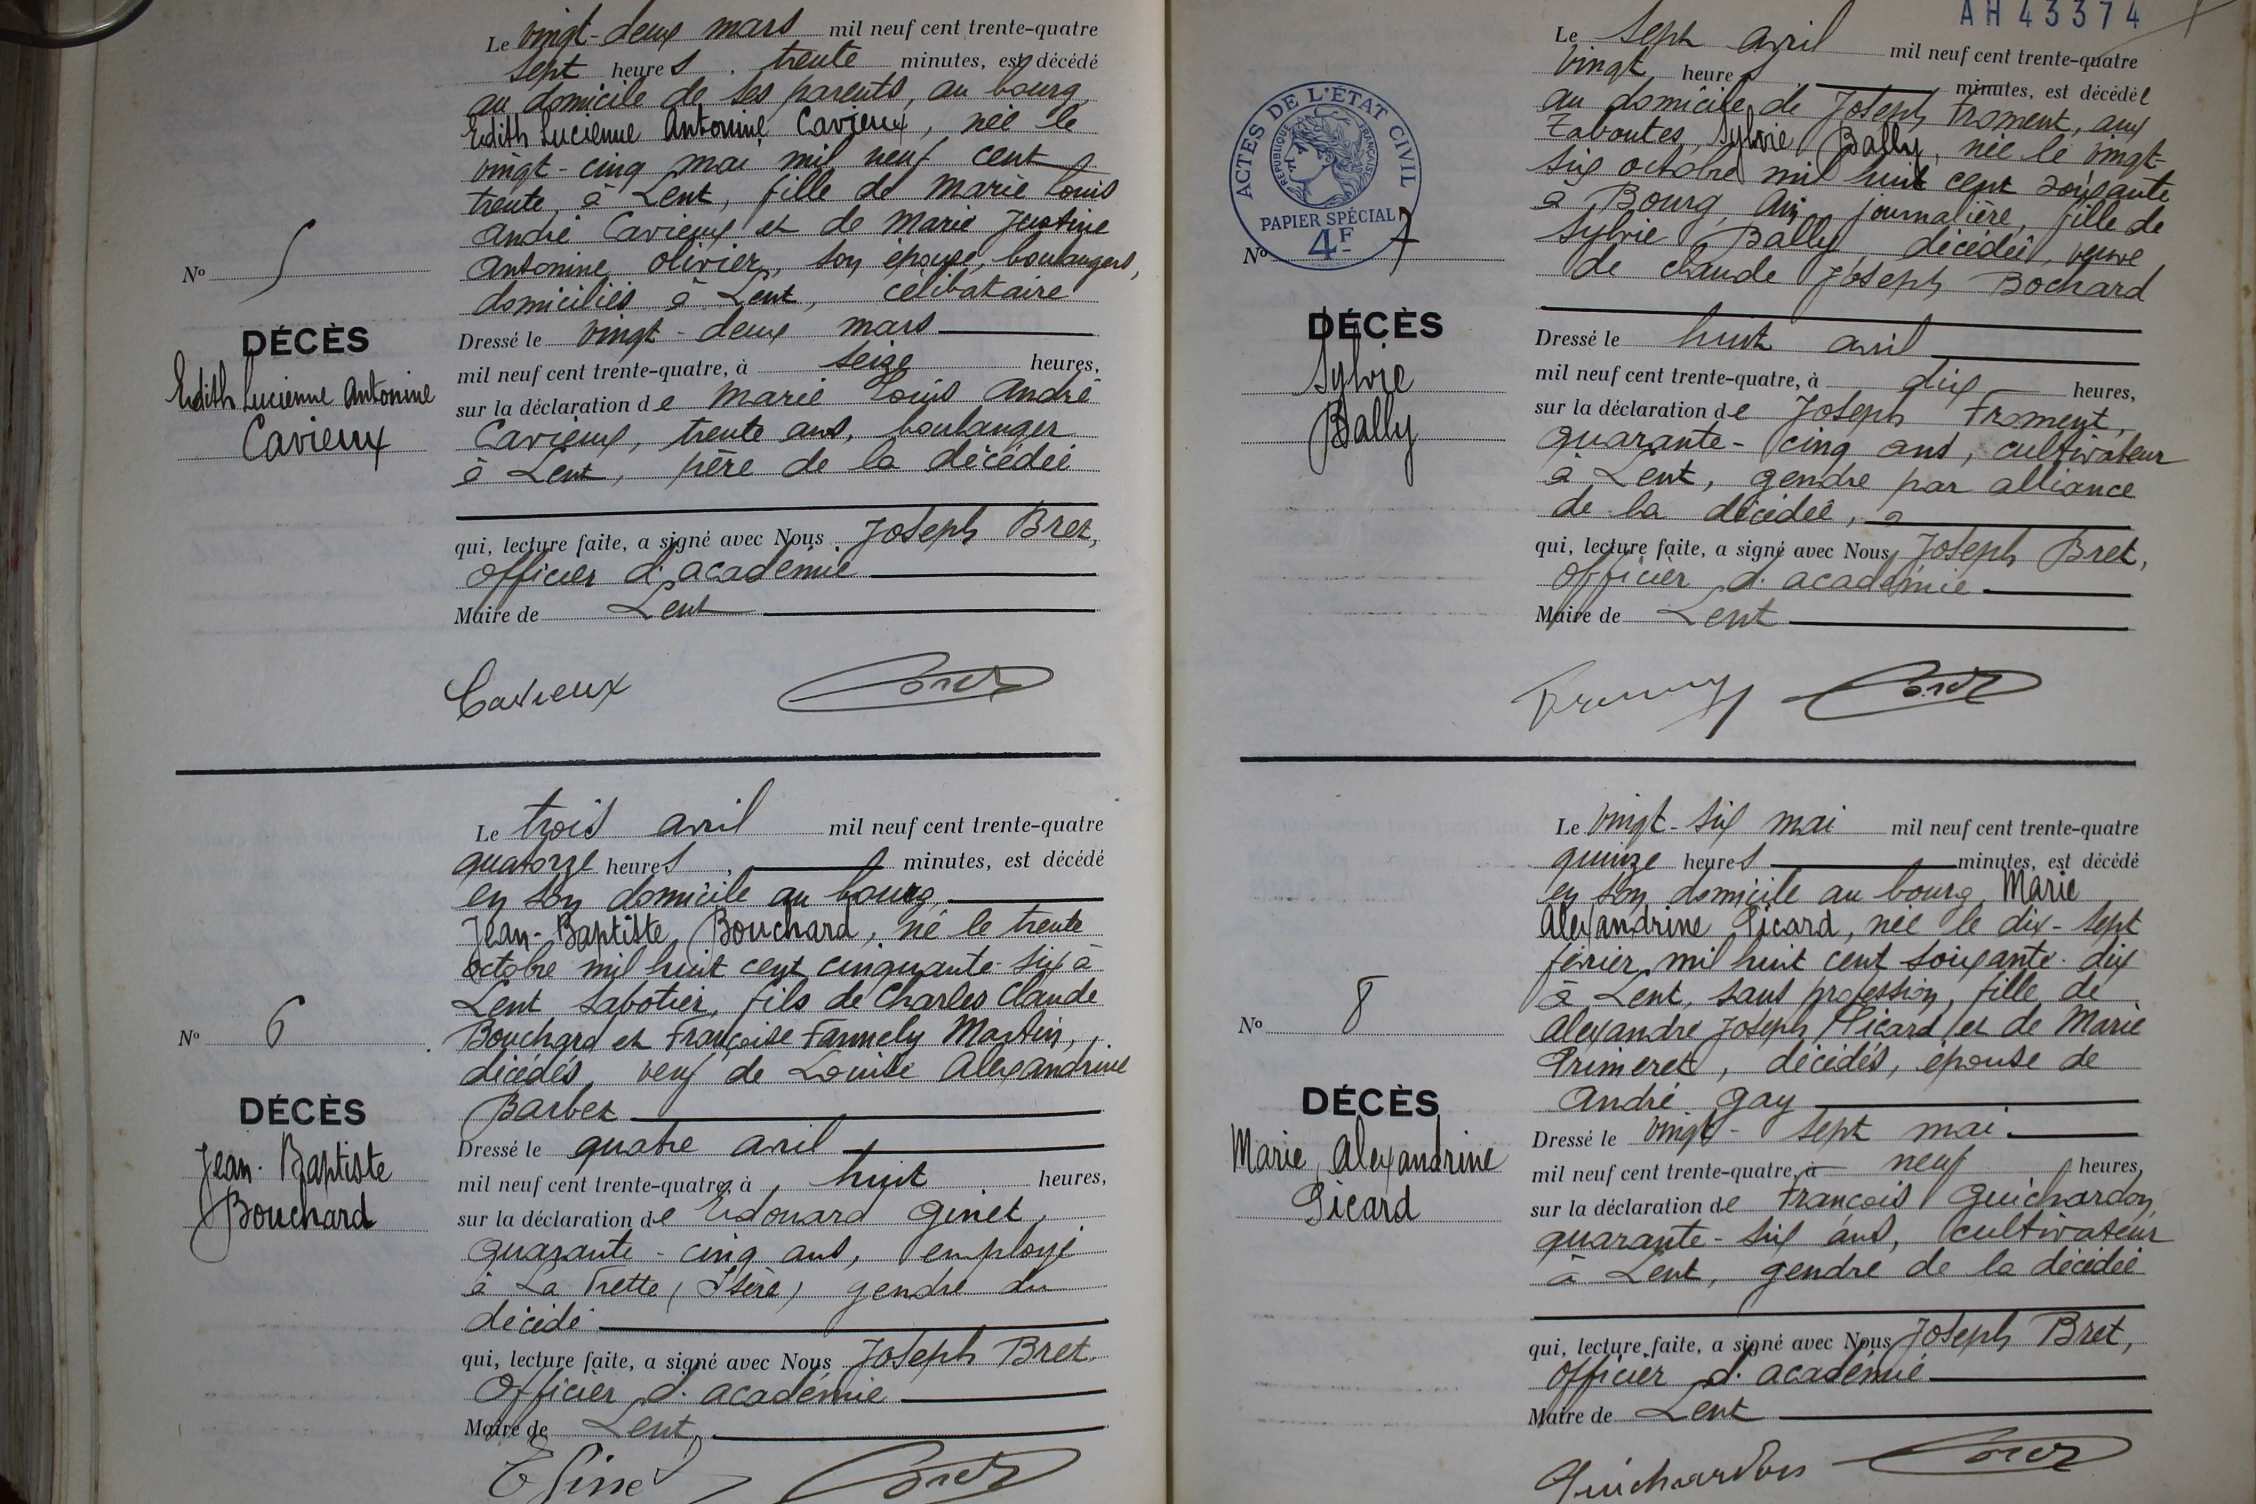 Le vingt-deux mars mil neuf cent trente-quatre
sept heures trente minutes, est décédé
au domicile de ses parents, au bourg
Edith Lucienne Antonine Cavieux, née le
vingt-cinq mai mil neuf cent
trente, à Lent, fille de Marie Louis
André Cavieux et de Marie Justine
Antonine Olivier, son épouse, boulangers,
domiciliés à Lent, célibataire
Nº 5
DÉCÈS
Edith Lucienne Antonine
Cavieux
Dressé le vingt-deux mars
mil neuf cent trente-quatre, à seize heures,
sur la déclaration de Marie Louis André
Cavieux, trente ans, boulanger
à Lent, père de la décédée
qui, lecture faite, a signé avec Nous Joseph Bret,
officier d'académie
Maire de Lent
Cavieux Bret
Le trois avril mil neuf cent trente-quatre
quatorze heures, minutes, est décédé
en son domicile au bourg,
Jean-Baptiste Bouchard, né le trente
octobre mil huit cent cinquante-six à
Lent sabotier, fils de Charles Claude
Bouchard et Françoise Fannely Martin,
décédés, veuf de Louise Alexandrine
Barbet
Nº 6
DÉCÈS
Jean-Baptiste
Bouchard
Dressé le quatre avril
mil neuf cent trente-quatre, à huit heures,
sur la déclaration de Edouard Ginet,
quarante-cinq ans, employé
à La Frette (Isère) gendre du
décédé
qui, lecture faite, a signé avec Nous Joseph Bret
officier d'académie
Maire de Lent
E Ginet Bret
AH43374
Le sept avril mil neuf cent trente-quatre
vingt heures minutes, est décédée
au domicile de Joseph Froment, aux
Sylvie Bally, née le vingt-
six octobre mil huit cent soixante
à Bourg, Ain journalière, fille de
Sylvie Bally décédée, veuve
de Claude Joseph Bochard
ACTES DE L'ÉTAT CIVIL
RÉPUBLIQUE FRANÇAISE
PAPIER SPÉCIAL
4F
Nº 7
DÉCÈS
Sylvie
Bally
Dressé le huit avril
mil neuf cent trente-quatre, à dix heures,
sur la déclaration de Joseph Froment,
quarante-cinq ans, cultivateur
à Lent, gendre par alliance
de la décédée,
qui, lecture faite, a signé avec Nous Joseph Bret,
officier d'académie
Maire de Lent
Froment Bret
Le vingt-six mai mil neuf cent trente-quatre
quinze heures minutes, est décédé
en son domicile au bourg Marie
Alexandrine Picard, née le dix-sept
février mil huit cent soixante-dix
à Lent, sans profession, fille de
Alexandre Joseph Picard et de Marie
Primeret, décédés, épouse de
André Gay
Nº 8
DÉCÈS
Marie Alexandrine
Picard
Dressé le vingt-sept mai
mil neuf cent trente-quatre, à neuf heures,
sur la déclaration de François Guichardon,
quarante-six ans, cultivateur
à Lent, gendre de la décédée
qui, lecture faite, a signé avec Nous Joseph Bret,
officier d'académie
Maire de Lent
Guichardon Bret